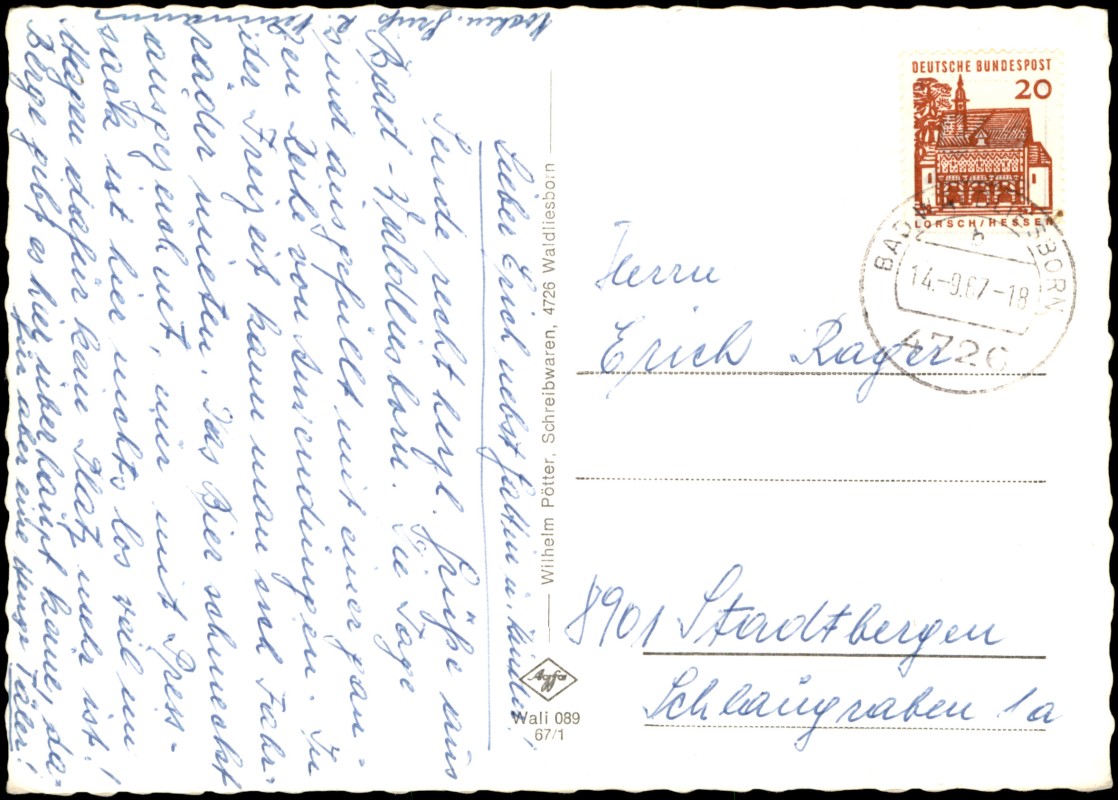 Lieber Erich nebst Gattin u. Kinder!
Sende recht herzl. Grüße aus
Bad-Waldliesborn. Die Tage
sind ausgefüllt mit einer gan-
zen Reihe von Anwendungen. In
der Freizeit kann man sich Fahr-
räder mieten. Das Bier schmeckt
ausgezeichnet, nur mit Press-
sack ist hier nichts los weil im
Magen dafür kein Platz mehr ist!
Berge gibt es hier überhaupt keine, da-
für aber eine Menge Täler!
Wilhelm Pötter, Schreibwaren, 4726 Waldliesborn
Agfa
Wali 089
67/1
DEUTSCHE BUNDESPOST
20
LORSCH/HESSEN
BAD WALDLIESBORN
b
14.-9.67-18
4726
Herrn
Erich Rager
8901 Stadtbergen
Schlaugraben 1a